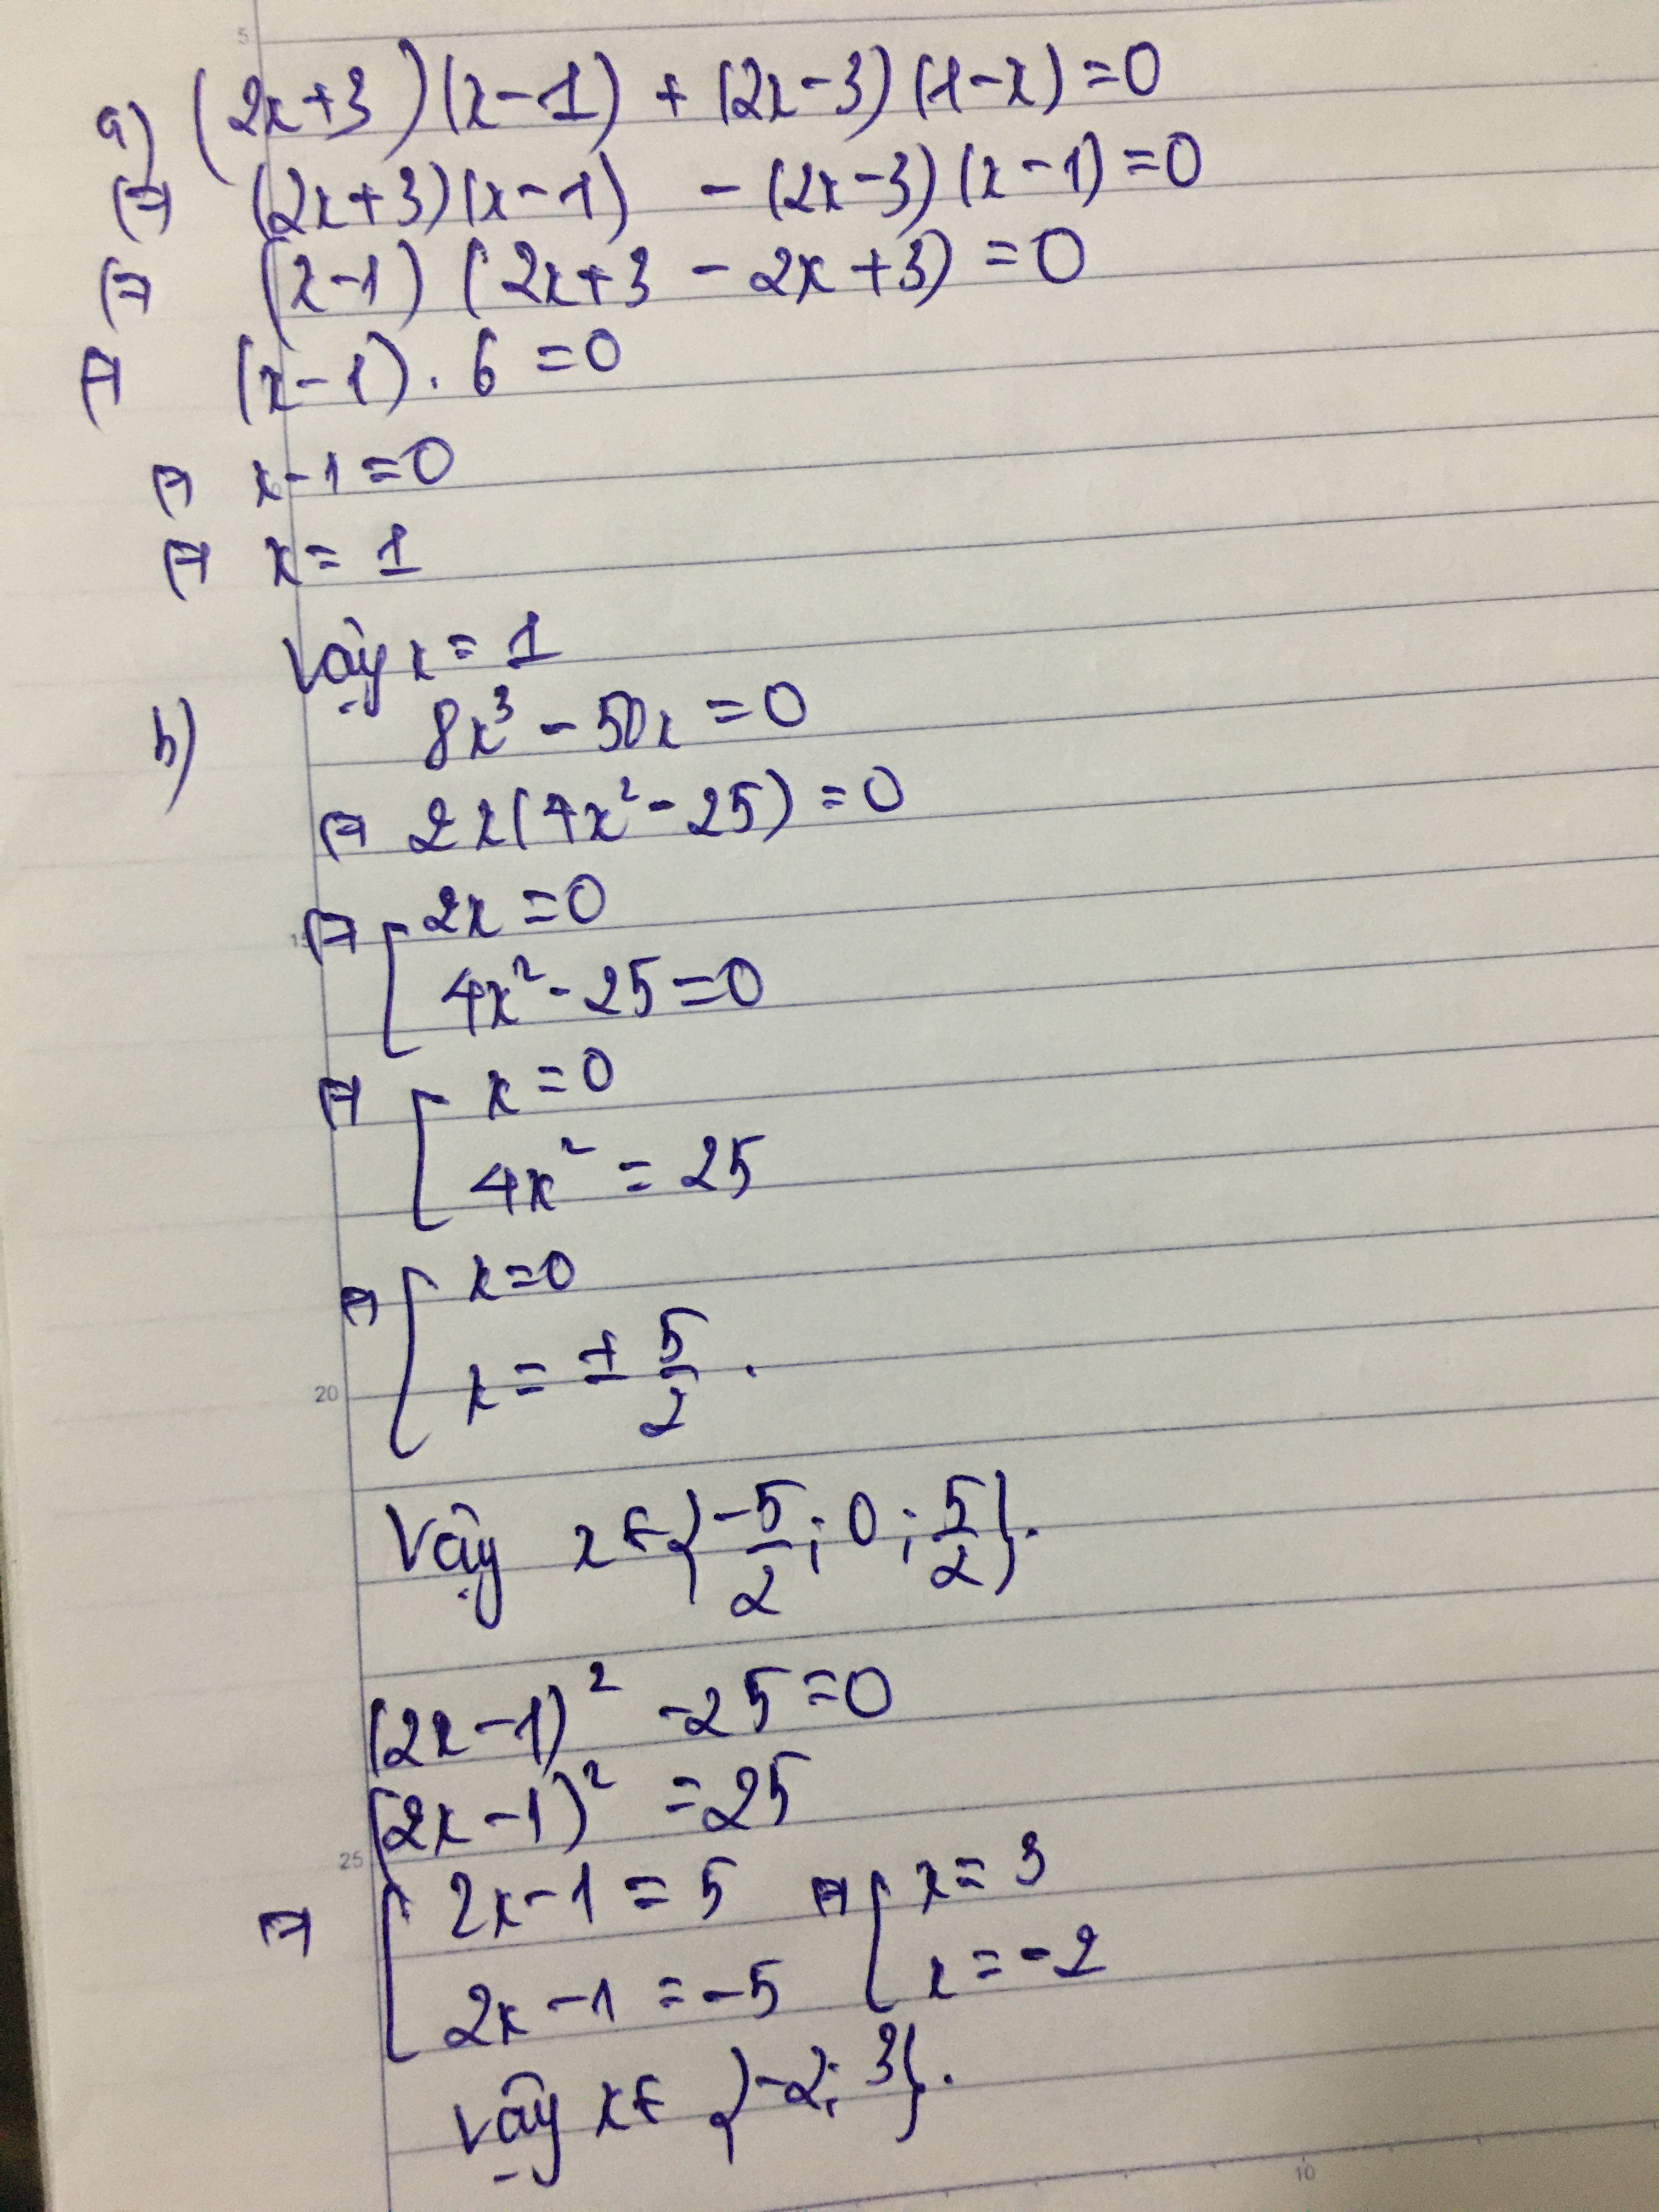 5
a) (2x+3)(x-1) + (2x-3)(1-x) = 0
⇔ (2x+3)(x-1) - (2x-3)(x-1) = 0
⇔ (x-1)(2x+3 - 2x+3) = 0
⇔ (x-1) . 6 = 0
⇔ x-1 = 0
⇔ x = 1
Vậy x = 1
b) 8x³ - 50x = 0
⇔ 2x(4x² - 25) = 0
15
⇔ [ 2x = 0
4x² - 25 = 0
⇔ [ x = 0
4x² = 25
⇔ [ x = 0
20
x = ± 5/2 .
Vậy x ∈ {-5/2 ; 0 ; 5/2}.
(2x-1)² - 25 = 0
(2x-1)² = 25
25
⇔ [ 2x-1 = 5 ⇔ [ x = 3
2x-1 = -5 x = -2
Vậy x ∈ {-2; 3}.
10